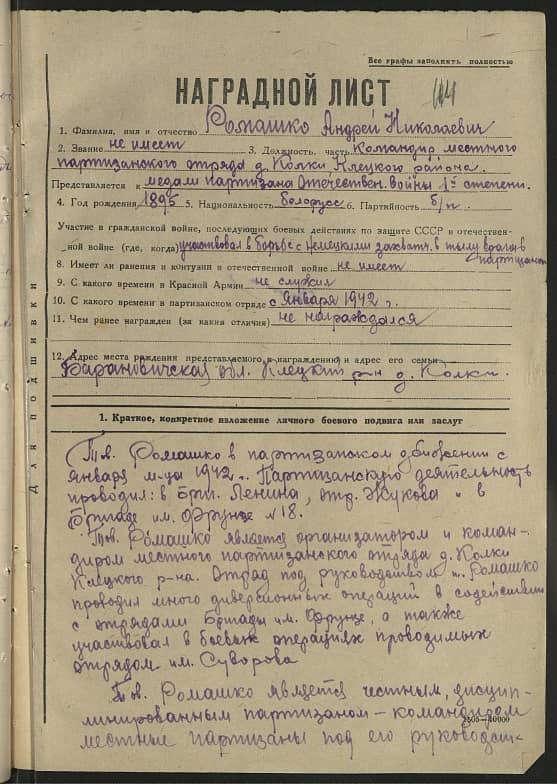 Все графы заполнять полностью
НАГРАДНОЙ ЛИСТ
1. Фамилия, имя и отчество Ромашко Андрей Николаевич
2. Звание не имеет 3. Должность, часть Командир местного
партизанского отряда д. Колки Клецкого района.
Представляется к медали Партизана Отечествен. войны 1й степени.
4. Год рождения 1895 5. Национальность белорусс 6. Партийность б/п.
Участие в гражданской войне, последующих боевых действиях по защите СССР в отечествен-
ной войне (где, когда) участвовал в борьбе с немецкими захватч. в тылу врага в
партизанах
8. Имеет ли ранения и контузии в отечественной войне не имеет
9. С какого времени в Красной Армии не служил
10. С какого времени в партизанском отряде с января 1942 г.
11. Чем ранее награжден (за какия отличия) не награждался
12. Адрес места рождения представляемого к награждению и адрес его семьи
Барановичская обл. Клецкий р-н д. Колки.
Для подшивки
1. Краткое, конкретное изложение личного боевого подвига или заслуг
Тов. Ромашко в партизанском движении с
января м-ца 1942 г. Партизанскую деятельность
проводил: в Бриг. Ленина, отр. Жукова и в
Бригаде им. Фрунзе №18.
Тов. Ромашко является организатором и коман-
диром местного партизанского отряда д. Колки
Клецкого р-на. Отряд под руководством т. Ромашко
проводил много диверсионных операций в содействии
с отрядами Бригады им. Фрунзе, а также
участвовал в боевых операциях проводимых
отрядом им. Суворова
Тов. Ромашко является честным, дисцип-
линированным партизаном - командиром
местные партизаны под его руководст-
1505—40000